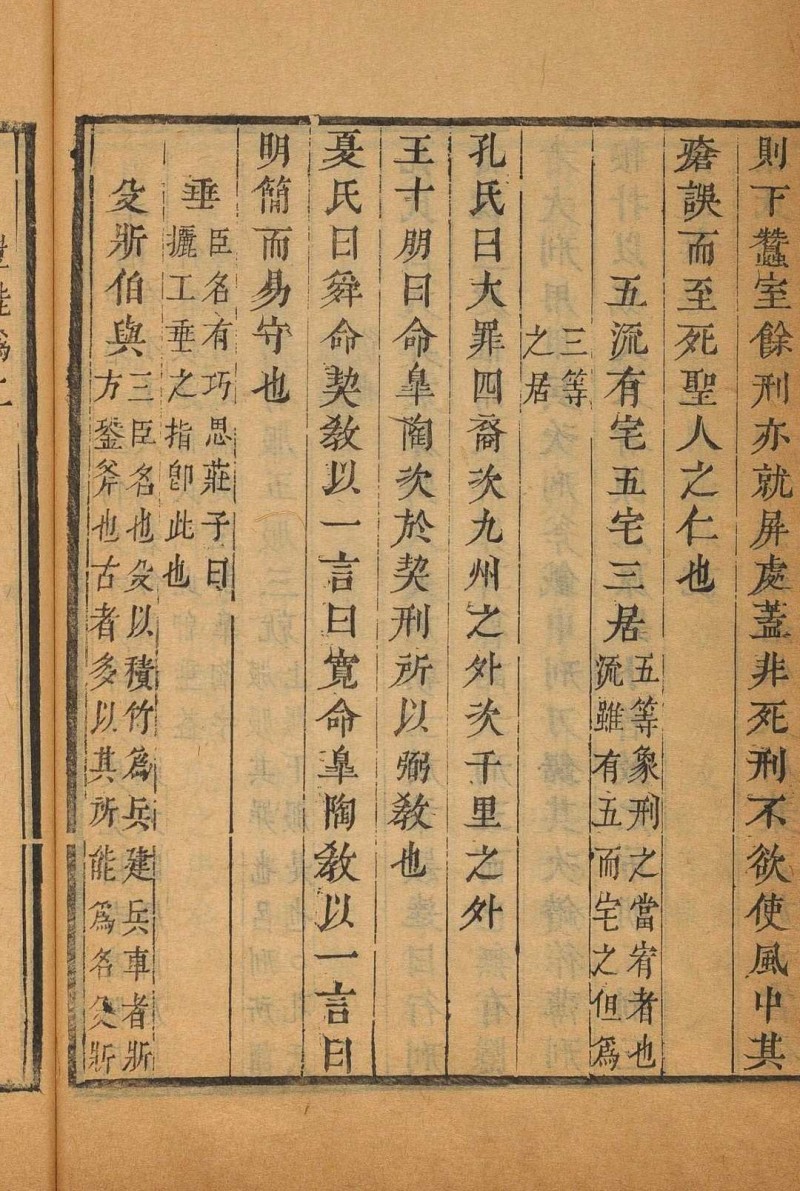 則下蠶室餘刑亦就屏處蓋非死刑不欲使風中其
瘡誤而至死聖人之仁也
五流有宅五宅三居五等象刑之當宥者也
流雖有五而宅之但爲
三等
之居
孔氏曰大罪四裔次九州之外次千里之外
王十朋曰命臯陶次於契刑所以弼敎也
夏氏曰舜命契敎以一言曰寬命臯陶敎以一言曰
明簡而易守也
垂臣名有巧思莊子曰
攦工垂之指卽此也
殳斨伯與三臣名也殳以積竹爲兵建兵車者斨
方銎斧也古者多以其所能爲名殳斨